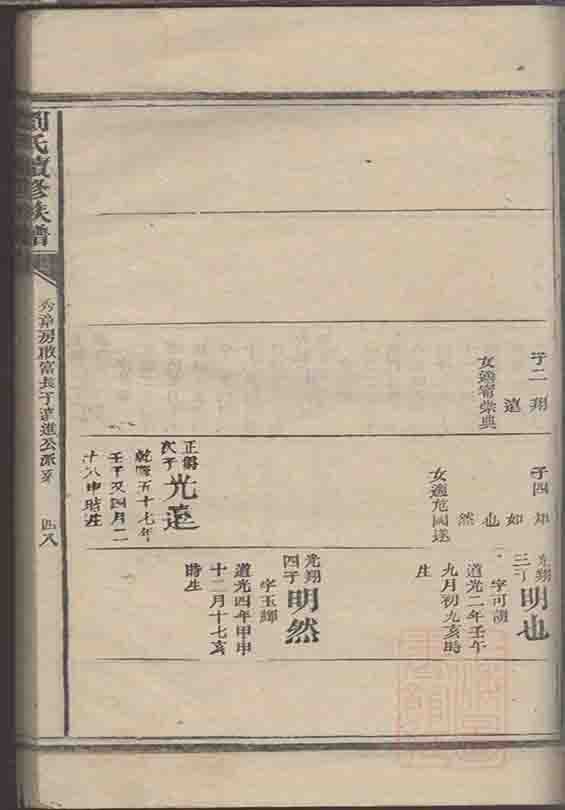 劉氏續修族譜
秀章房啟富長子遠進公派系
四八
子二 翔
遠
女適甯崇典
子四 如
如
也
然
女適危國遂
正爵次子 光遠
乾隆五十七年
壬子又四月二
十八申時生
光翔三子 明也
字可謨
道光二年壬午
九月初九亥時
生
光翔四子 明然
字玉輝
道光四年甲申
十二月十七亥
時生